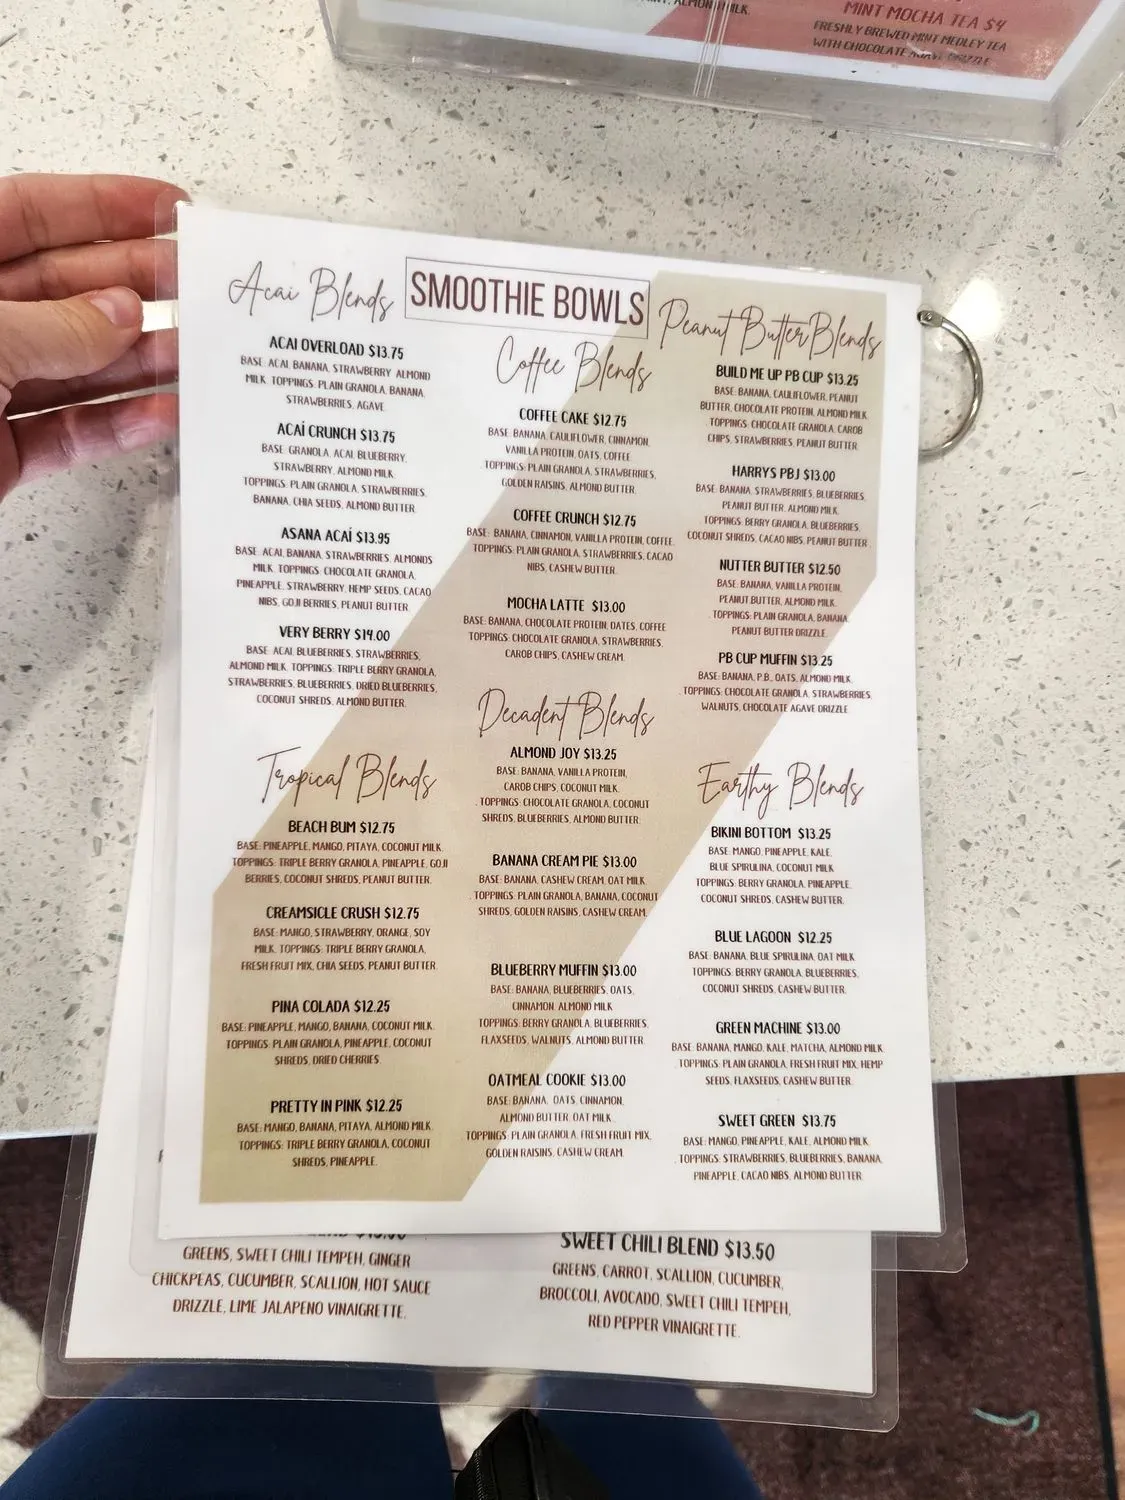 MINT MOCHA TEA $4
FRESHLY BREWED MINT MEDLEY TEA
WITH CHOCOLATE AGAVE DRIZZLE
SMOOTHIE BOWLS
Acai Blends
ACAI OVERLOAD $13.75
BASE: ACAI, BANANA, STRAWBERRY, ALMOND
MILK. TOPPINGS: PLAIN GRANOLA, BANANA,
STRAWBERRIES, AGAVE.
ACAÍ CRUNCH $13.75
BASE: GRANOLA, ACAI, BLUEBERRY,
STRAWBERRY, ALMOND MILK.
TOPPINGS: PLAIN GRANOLA, STRAWBERRIES,
BANANA, CHIA SEEDS, ALMOND BUTTER.
ASANA ACAÍ $13.95
BASE: ACAI, BANANA, STRAWBERRIES, ALMONDS
MILK. TOPPINGS: CHOCOLATE GRANOLA,
PINEAPPLE, STRAWBERRY, HEMP SEEDS, CACAO
NIBS, GOJI BERRIES, PEANUT BUTTER.
VERY BERRY $14.00
BASE: ACAI, BLUEBERRIES, STRAWBERRIES,
ALMOND MILK. TOPPINGS: TRIPLE BERRY GRANOLA,
STRAWBERRIES, BLUEBERRIES, DRIED BLUEBERRIES,
COCONUT SHREDS, ALMOND BUTTER.
Tropical Blends
BEACH BUM $12.75
BASE: PINEAPPLE, MANGO, PITAYA, COCONUT MILK.
TOPPINGS: TRIPLE BERRY GRANOLA, PINEAPPLE, GOJI
BERRIES, COCONUT SHREDS, PEANUT BUTTER.
CREAMSICLE CRUSH $12.75
BASE: MANGO, STRAWBERRY, ORANGE, SOY
MILK. TOPPINGS: TRIPLE BERRY GRANOLA,
FRESH FRUIT MIX, CHIA SEEDS, PEANUT BUTTER.
PINA COLADA $12.25
BASE: PINEAPPLE, MANGO, BANANA, COCONUT MILK.
TOPPINGS: PLAIN GRANOLA, PINEAPPLE, COCONUT
SHREDS, DRIED CHERRIES.
PRETTY IN PINK $12.25
BASE: MANGO, BANANA, PITAYA, ALMOND MILK.
TOPPINGS: TRIPLE BERRY GRANOLA, COCONUT
SHREDS, PINEAPPLE.
Coffee Blends
COFFEE CAKE $12.75
BASE: BANANA, CAULIFLOWER, CINNAMON,
VANILLA PROTEIN, OATS, COFFEE.
TOPPINGS: PLAIN GRANOLA, STRAWBERRIES,
GOLDEN RAISINS, ALMOND BUTTER.
COFFEE CRUNCH $12.75
BASE: BANANA, CINNAMON, VANILLA PROTEIN, COFFEE.
TOPPINGS: PLAIN GRANOLA, STRAWBERRIES, CACAO
NIBS, CASHEW BUTTER.
MOCHA LATTE $13.00
BASE: BANANA, CHOCOLATE PROTEIN, DATES, COFFEE
TOPPINGS: CHOCOLATE GRANOLA, STRAWBERRIES,
CAROB CHIPS, CASHEW CREAM.
Decadent Blends
ALMOND JOY $13.25
BASE: BANANA, VANILLA PROTEIN,
CAROB CHIPS, COCONUT MILK.
. TOPPINGS: CHOCOLATE GRANOLA, COCONUT
SHREDS, BLUEBERRIES, ALMOND BUTTER.
BANANA CREAM PIE $13.00
BASE: BANANA, CASHEW CREAM, OAT MILK.
. TOPPINGS: PLAIN GRANOLA, BANANA, COCONUT
SHREDS, GOLDEN RAISINS, CASHEW CREAM.
BLUEBERRY MUFFIN $13.00
BASE: BANANA, BLUEBERRIES, OATS,
CINNAMON, ALMOND MILK.
TOPPINGS: BERRY GRANOLA, BLUEBERRIES,
FLAXSEEDS, WALNUTS, ALMOND BUTTER.
OATMEAL COOKIE $13.00
BASE: BANANA, OATS, CINNAMON,
ALMOND BUTTER, OAT MILK.
TOPPINGS: PLAIN GRANOLA, FRESH FRUIT MIX,
GOLDEN RAISINS, CASHEW CREAM.
Peanut Butter Blends
BUILD ME UP PB CUP $13.25
BASE: BANANA, CAULIFLOWER, PEANUT
BUTTER, CHOCOLATE PROTEIN, ALMOND MILK.
TOPPINGS: CHOCOLATE GRANOLA, CAROB
CHIPS, STRAWBERRIES, PEANUT BUTTER.
HARRYS PBJ $13.00
BASE: BANANA, STRAWBERRIES, BLUEBERRIES,
PEANUT BUTTER, ALMOND MILK.
TOPPINGS: BERRY GRANOLA, BLUEBERRIES,
COCONUT SHREDS, CACAO NIBS, PEANUT BUTTER.
NUTTER BUTTER $12.50
BASE: BANANA, VANILLA PROTEIN,
PEANUT BUTTER, ALMOND MILK.
. TOPPINGS: PLAIN GRANOLA, BANANA,
PEANUT BUTTER DRIZZLE.
PB CUP MUFFIN $13.25
BASE: BANANA, P.B., OATS, ALMOND MILK.
. TOPPINGS: CHOCOLATE GRANOLA, STRAWBERRIES,
WALNUTS, CHOCOLATE AGAVE DRIZZLE.
Earthy Blends
BIKINI BOTTOM $13.25
BASE: MANGO, PINEAPPLE, KALE,
BLUE SPIRULINA, COCONUT MILK
TOPPINGS: BERRY GRANOLA, PINEAPPLE,
COCONUT SHREDS, CASHEW BUTTER.
BLUE LAGOON $12.25
BASE: BANANA, BLUE SPIRULINA, OAT MILK
TOPPINGS: BERRY GRANOLA, BLUEBERRIES,
COCONUT SHREDS, CASHEW BUTTER.
GREEN MACHINE $13.00
BASE: BANANA, MANGO, KALE, MATCHA, ALMOND MILK.
TOPPINGS: PLAIN GRANOLA, FRESH FRUIT MIX, HEMP
SEEDS, FLAXSEEDS, CASHEW BUTTER.
SWEET GREEN $13.75
BASE: MANGO, PINEAPPLE, KALE, ALMOND MILK.
. TOPPINGS: STRAWBERRIES, BLUEBERRIES, BANANA,
PINEAPPLE, CACAO NIBS, ALMOND BUTTER.
GREENS, SWEET CHILI TEMPEH, GINGER
CHICKPEAS, CUCUMBER, SCALLION, HOT SAUCE
DRIZZLE, LIME JALAPENO VINAIGRETTE.
SWEET CHILI BLEND $13.50
GREENS, CARROT, SCALLION, CUCUMBER,
BROCCOLI, AVOCADO, SWEET CHILI TEMPEH,
RED PEPPER VINAIGRETTE.